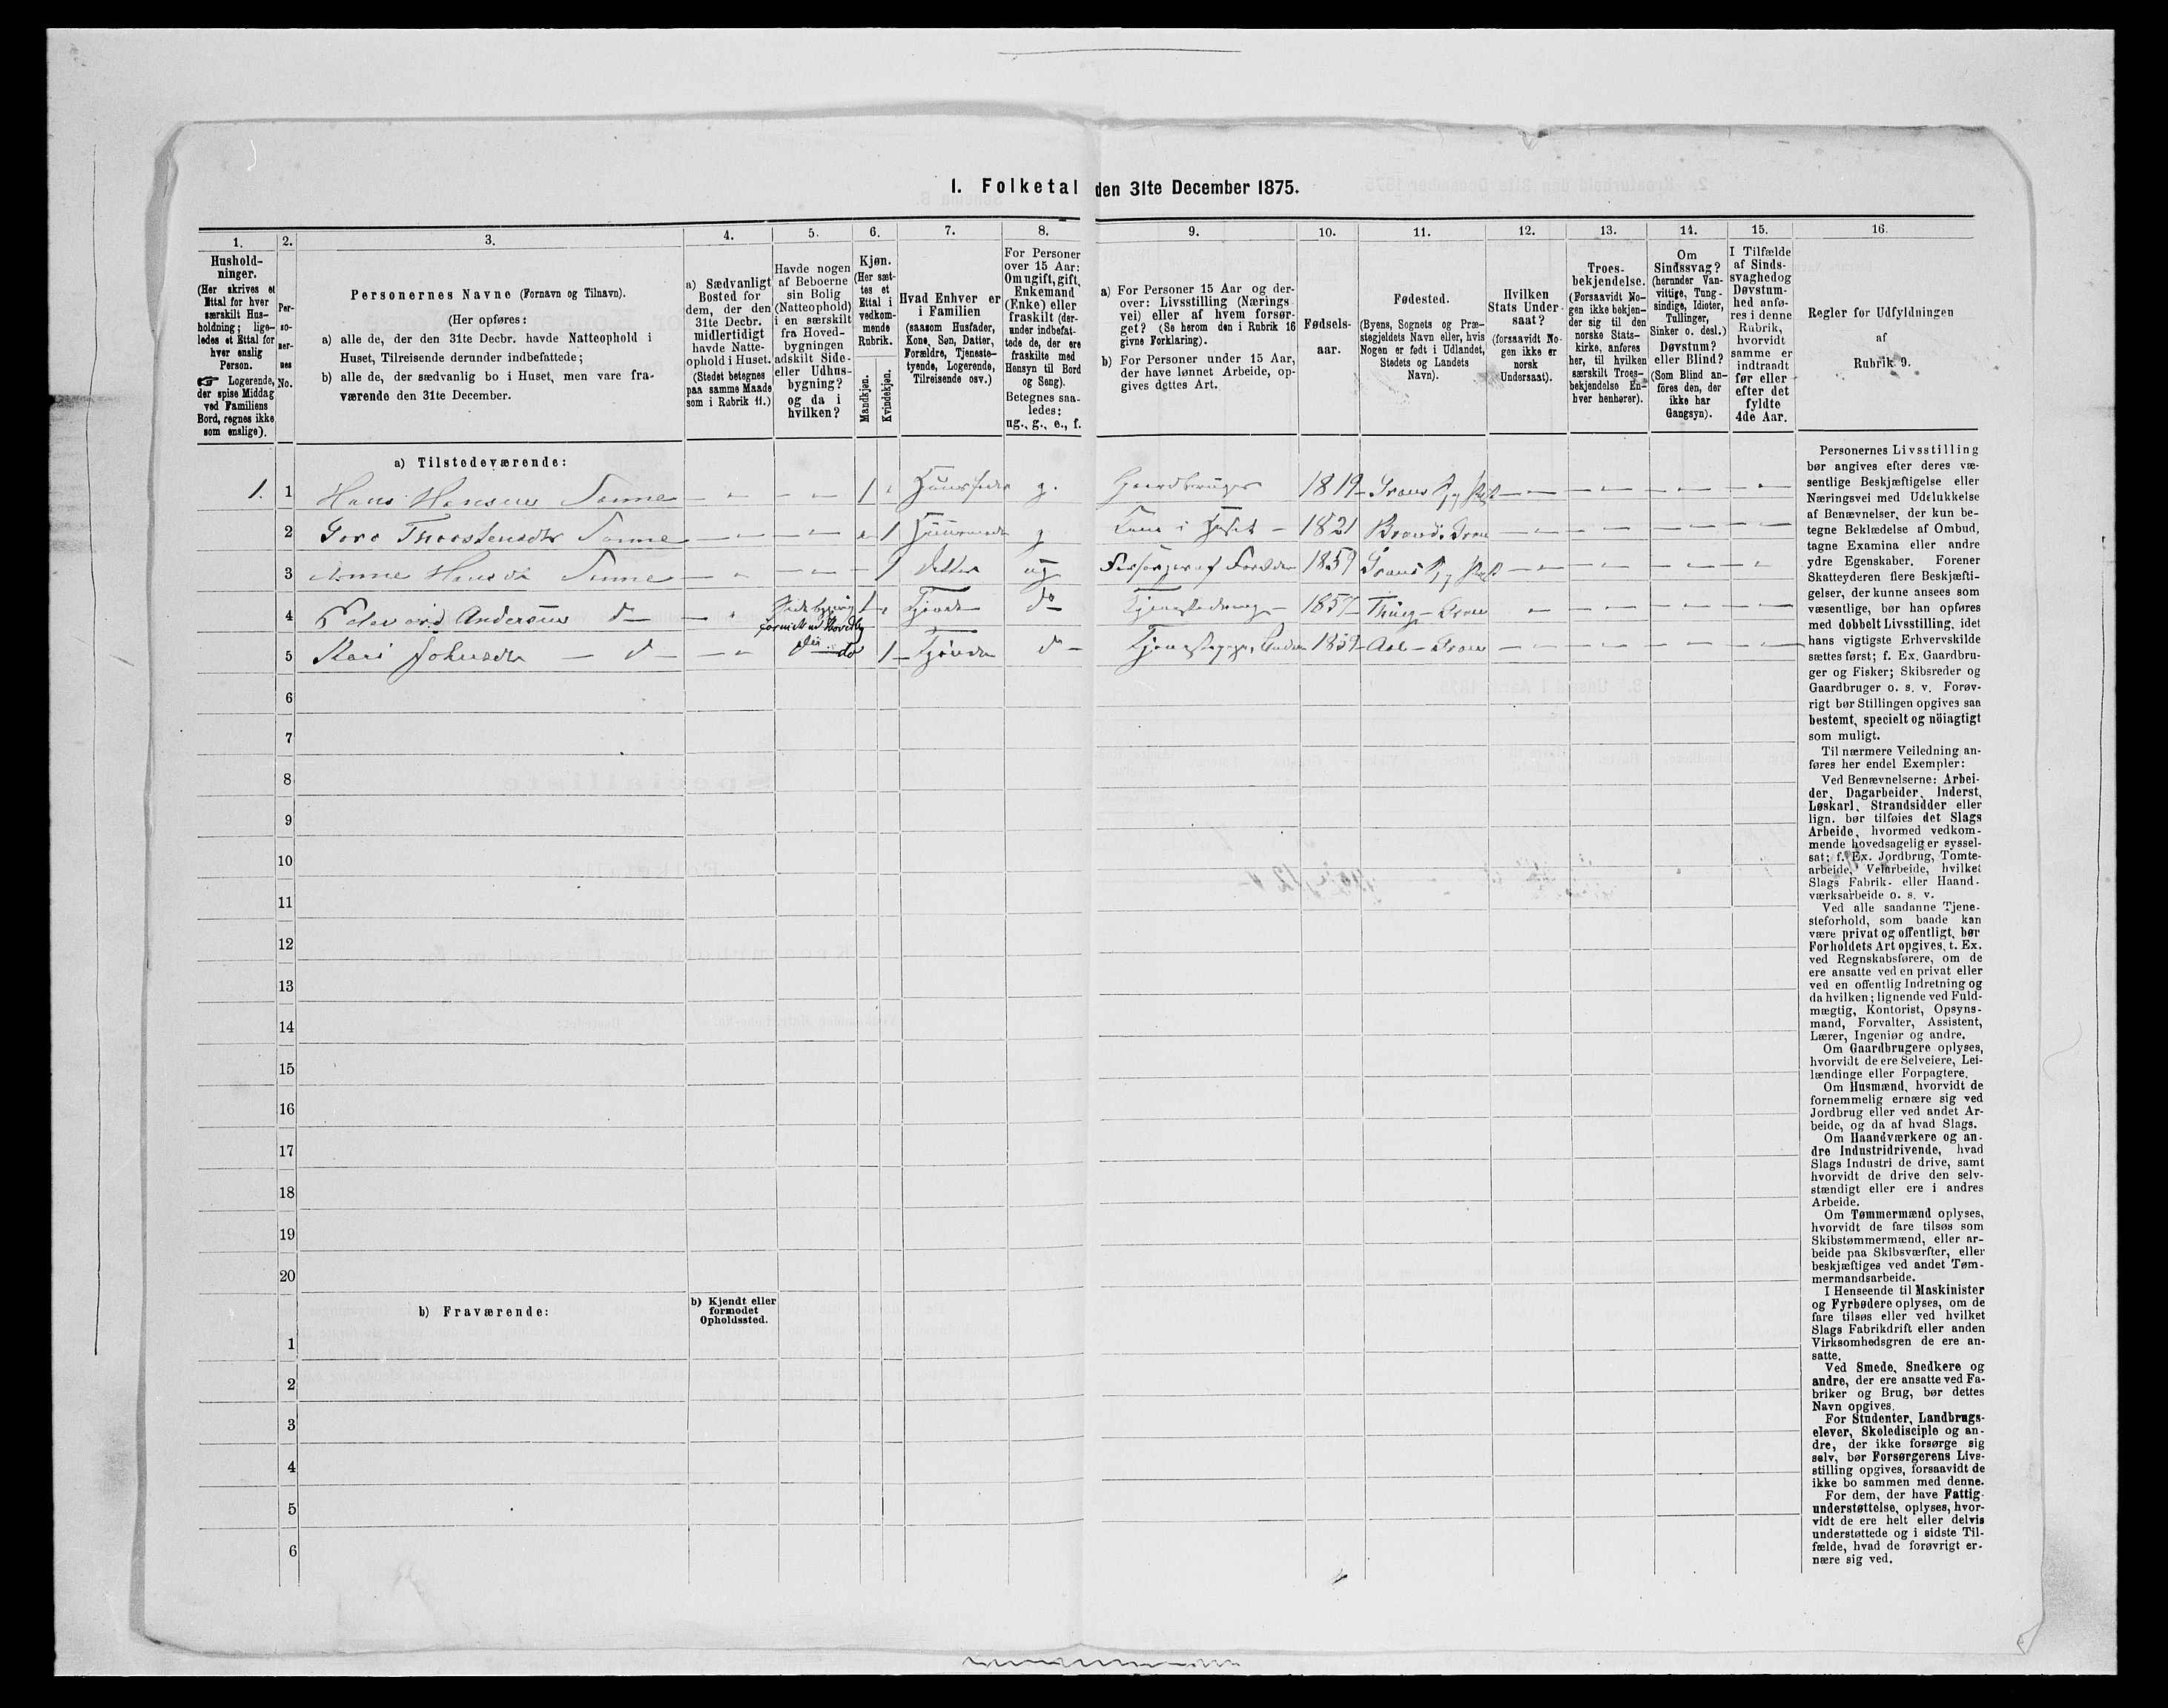 I. Folketal den 31te December 1875.
1. 2. 3. 4. 5. 6. 7. 8. 9. 10. 11. 12. 13. 14. 15. 16.
Hushold-
ninger.
(Her skrives et
Ettal for hver
særskilt Hus-
holdning; lige-
ledes et Ettal for
hver enslig
Person.
☞ Logerende,
der spise Middag
ved Familiens
Bord, regnes ikke
som enslige).
Per-
so-
ner-
nes
No.
Personernes Navne (Fornavn og Tilnavn).
(Her opføres:
a) alle de, der den 31te Decbr. havde Natteophold i
Huset, Tilreisende derunder indbefattede;
b) alle de, der sædvanlig bo i Huset, men vare fra-
værende den 31te December.
a) Sædvanligt
Bosted for
dem, der den
31te Decbr.
midlertidigt
havde Natte-
ophold i Huset.
(Stedet betegnes
paa samme Maade
som i Rubrik 11.)
Havde nogen
af Beboerne
sin Bolig
(Natteophold)
i en særskilt
fra Hoved-
bygningen
adskilt Side-
eller Udhus-
bygning?
og da i
hvilken?
Kjøn.
(Her sæt-
tes et
Ettal i
vedkom-
mende
Rubrik.
Mandkjøn.
Kvindekjøn.
Hvad Enhver er
i Familien
(saasom Husfader,
Kone, Søn, Datter,
Forældre, Tjeneste-
tyende, Logerende,
Tilreisende osv.)
For Personer
over 15 Aar:
Om ugift, gift,
Enkemand
(Enke) eller
fraskilt (der-
under indbefat-
tede de, der ere
fraskilte med
Hensyn til Bord
og Seng).
Betegnes saa-
ledes:
ug., g., e., f.
a) For Personer 15 Aar og der-
over: Livsstilling (Nærings
vei) eller af hvem forsør-
get? (Se herom den i Rubrik 16
givne Forklaring).
b) For Personer under 15 Aar,
der have lønnet Arbeide, op-
gives dettes Art.
Fødsels-
aar.
Fødested.
(Byens, Sognets og Præ-
stegjeldets Navn eller, hvis
Nogen er født i Udlandet,
Stedets og Landets
Navn).
Hvilken
Stats Under-
saat?
(forsaavidt No-
gen ikke er
norsk
Undersaat).
Troes-
bekjendelse.
(Forsaavidt No-
gen ikke bekjen-
der sig til den
norske Stats-
kirke, anføres
her, til hvilken
særskilt Troes-
bekjendelse En-
hver henhører).
Om
Sindssvag?
(herunder Van-
vittige, Tung-
sindige, Idioter,
Tullinger,
Sinker o. desl.)
Døvstum?
eller Blind?
(Som Blind an-
føres den, der
ikke har
Gangsyn).
I Tilfælde
af Sinds-
svaghed og
Døvstum-
hed anfø-
res i denne
Rubrik,
hvorvidt
samme er
indtraadt
før eller
efter det
fyldte
4de Aar.
Regler for Udfyldningen
af
Rubrik 9.
a) Tilstedeværende:
1. 1 Hans Hansen Sonne 1 Huusfader g. Gaardbruger 1819
2 Goro Thorstensdtr Sonne 1 Huusmoder g 1821 Brandb. Gran
3 Anne Hansdtr Sonne 1 datter ug Forsørges af Forældre 1859
4 Edevard Andersen d 1 Tjener do Tjenestedreng 1857 Gran
5 Kari Johnsdtr d do 1 Tjener d 1859 Aal Gran
6
7
8
9
10
11
12
13
14
15
16
17
18
19
20
b) Fraværende:
b) Kjendt eller
formodet
Opholdssted.
1
2
3
4
5
6
Personernes Livsstilling
bør angives efter deres væ-
sentlige Beskjæftigelse eller
Næringsvei med Udelukkelse
af Benævnelser, der kun be-
tegne Beklædelse af Ombud,
tagne Examina eller andre
ydre Egenskaber. Forener
Skatteyderen flere Beskjæfti-
gelser, der kunne ansees som
væsentlige, bør han opføres
med dobbelt Livsstilling, idet
hans vigtigste Erhvervskilde
sættes først; f. Ex. Gaardbru-
ger og Fisker; Skibsreder og
Gaardbruger o. s. v. Forøv-
rigt bør Stillingen opgives saa
bestemt, specielt og nöiagtigt
som muligt.
Til nærmere Veiledning an-
føres her endel Exempler:
Ved Benævnelserne: Arbei-
der, Dagarbeider, Inderst,
Løskarl, Strandsidder eller
lign. bør tilføies det Slags
Arbeide, hvormed vedkom-
mende hovedsagelig er syssel-
sat; f. Ex. Jordbrug, Tomte-
arbeide, Veiarbeide, hvilket
Slags Fabrik- eller Haand-
værksarbeide o. s. v.
Ved alle saadanne Tjene-
steforhold, som baade kan
være privat og offentligt, bør
Forholdets Art opgives, t. Ex.
ved Regnskabsførere, om de
ere ansatte ved en privat eller
ved en offentlig Indretning og
da hvilken; lignende ved Fuld-
mægtig, Kontorist, Opsyns-
mand, Forvalter, Assistent,
Lærer, Ingeniør og andre.
Om Gaardbrugere oplyses,
hvorvidt de ere Selveiere, Lei-
lændinge eller Forpagtere.
Om Husmænd, hvorvidt de
fornemmelig ernære sig ved
Jordbrug eller ved andet Ar-
beide, og da af hvad Slags.
Om Haandværkere og an-
dre Industridrivende, hvad
Slags Industri de drive, samt
hvorvidt de drive den selv-
stændigt eller ere i andres
Arbeide.
Om Tømmermænd oplyses,
hvorvidt de fare tilsøs som
Skibstømmermænd, eller ar-
beide paa Skibsværfter, eller
beskjæftiges ved andet Tøm-
mermandsarbeide.
I Henseende til Maskinister
og Fyrbødere oplyses, om de
fare tilsøs eller ved hvilket
Slags Fabrikdrift eller anden
Virksomhedsgren de ere an-
satte.
Ved Smede, Snedkere og
andre, der ere ansatte ved Fa-
briker og Brug, bør dettes
Navn opgives.
For Studenter, Landbrugs-
elever, Skoledisciple og an-
dre, der ikke forsørge sig
selv, bør Forsørgerens Livs-
stilling opgives, forsaavidt de
ikke bo sammen med denne.
For dem, der have Fattig-
understøttelse, oplyses, hvor-
vidt de ere helt eller delvis
understøttede og i sidste Til-
fælde, hvad de forøvrigt er-
nære sig ved.